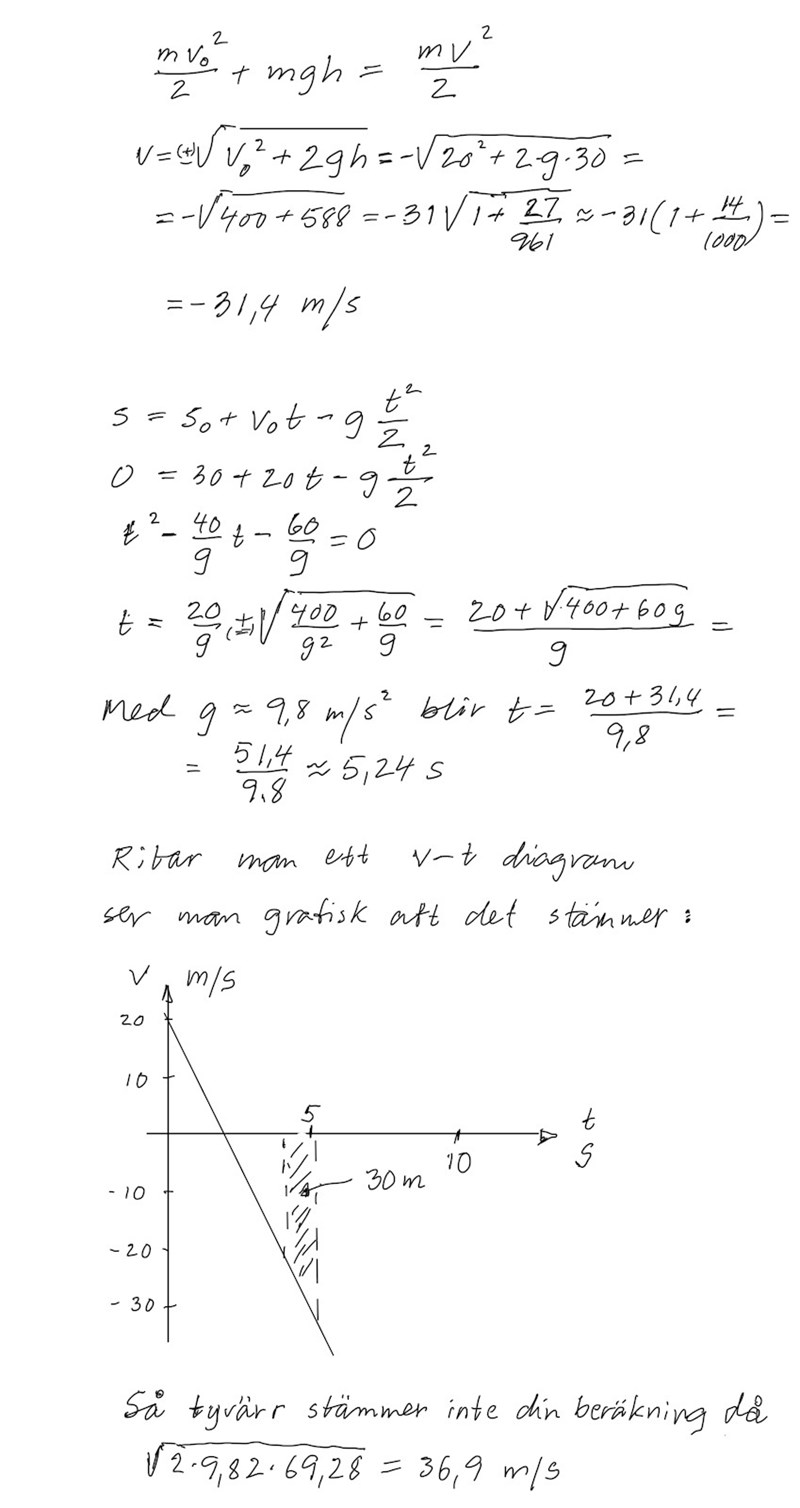 mv₀²/2 + mgh = mv²/2
v = (±)√(v₀² + 2gh) = -√(20² + 2·g·30) =
= -√(400 + 588) = -31√(1 + 27/961) ≈ -31(1 + 14/1000) =
= -31,4 m/s
s = s₀ + v₀t - g t²/2
0 = 30 + 20t - g t²/2
t² - 40/g t - 60/g = 0
t = 20/g (±)√(400/g² + 60/g) = (20 + √(400 + 60g))/g =
Med g ≈ 9,8 m/s² blir t = (20 + 31,4)/9,8 =
= 51,4/9.8 ≈ 5,24 s
Ritar man ett v-t diagram
ser man grafisk att det stämmer :
v m/s
20
10
5
t
s
10
30 m
-10
-20
-30
Så tyvärr stämmer inte din beräkning då
√(2·9,82·69,28) = 36,9 m/s